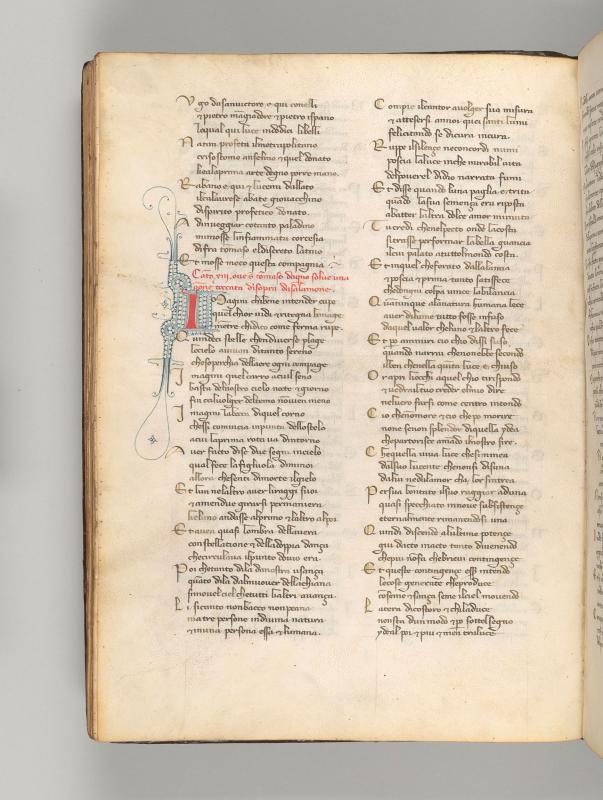 Vgo dasanvictore e qui conelli
e pietro mangiadore e pietro ispano
loqual giu luce indodici libelli
Natam profeta elmetropolitano
crisostomo anselmo e quel donato
kealaprima arte degno porre mano.
Rabano e qui e lucemi dallato
ilcalavrese abate giovacchino
dispirito profetico donato.
Adinveggiar cotanto paladino
mimosse linfiammata cortesia
difra tomaso eldiscreto latino
Et mosse meco questa compagnia.
Imagini chibene intender cupe
quelchior vidi e ritegna limage
mentre chidico come ferma rupe.
Quindici stelle chendiverse plage
locielo avivan ditanto sereno
chesoperchia dellaere ogni compage
Imagini quelcarro acuil seno
basta delnostro cielo notte e giorno
sin calvolger deltemo nonvien meno
Imagini labocca diquel corno
chessi comincia inpunta dellostelo
acui laprima rota va dintorno
Aver fatto dise due segni incielo
qual fece lafigliuola diminoi
allora chesenti dimorte ilgielo
Et lun nellaltro aver liraggi suoi
e amendue girarsi permaniera
che luno andasse alprimo e laltro alpoi
Et avra quasi lombra dellavera
constellatione e delladoppia dança
checirculava ilpunto dovio era.
Poi chetanto dila danostra usança
quanto dila dalmuover dellachiana
simoveilciel chetutti glialtri avança.
Li sicanto nonbacco nonpeana
ma tre persone indivina natura
e inuna persona essa e lhumana.
Compie ilcantar avolger sua misura
e attesersi annoi quei santi lumi
felicitando se dicura incura.
Ruppe ilsilençio neconcordi numi
poscia laluce inche mirabil vita
delpoverel didio narrata fumi
Et disse quando luna paglia e trita
quando lasua semença era riposta
abatter laltra dolce amor minvita
Tu credi chenelpecto onde lacosta
sitrasse performar labella guancia
ilcui palato atuttolmondo costa.
Et inquel cheforato dallalancia
e poscia e prima tanto satisfece
chedogni colpa vince labilancia
Quantunque alanatura humana lece
aver dilume tutto fosse infuso
daquel valor cheluno e laltro fece
Et pero ammiri cio chio dissi suso
quando narrai chenonebbe secondo
ilben chenella quinta luce e chiuso
Or apri liocchi aquel chio tirispondo
e vedrai iltuo creder elmio dire
nelvero farsi come centro intondo
Cio chenonmore e cio che po morire
none senon splendor diquella ydea
chepartorisce amando ilnostro sire.
Chequella viva luce chesimmea
dalsuo lucente chenonsi disuna
dalui nedallamor cha lor sintrea
Persua bontate ilsuo raggiar aduna
quasi specchiato innove subsistençe
eternalmente rimanendosi una
Quindi discende alultime potençe
giu dacto inacto tanto divenendo
chepiu nonfa chebrievi contingençe
Et queste contingençe essere intendo
lecose generate cheproduce
conseme e sança seme ilciel movendo
Lacera dicostoro e chiladuce
nonsta dun modo e pero sottol segno
ydeal poi e piu e men traluce